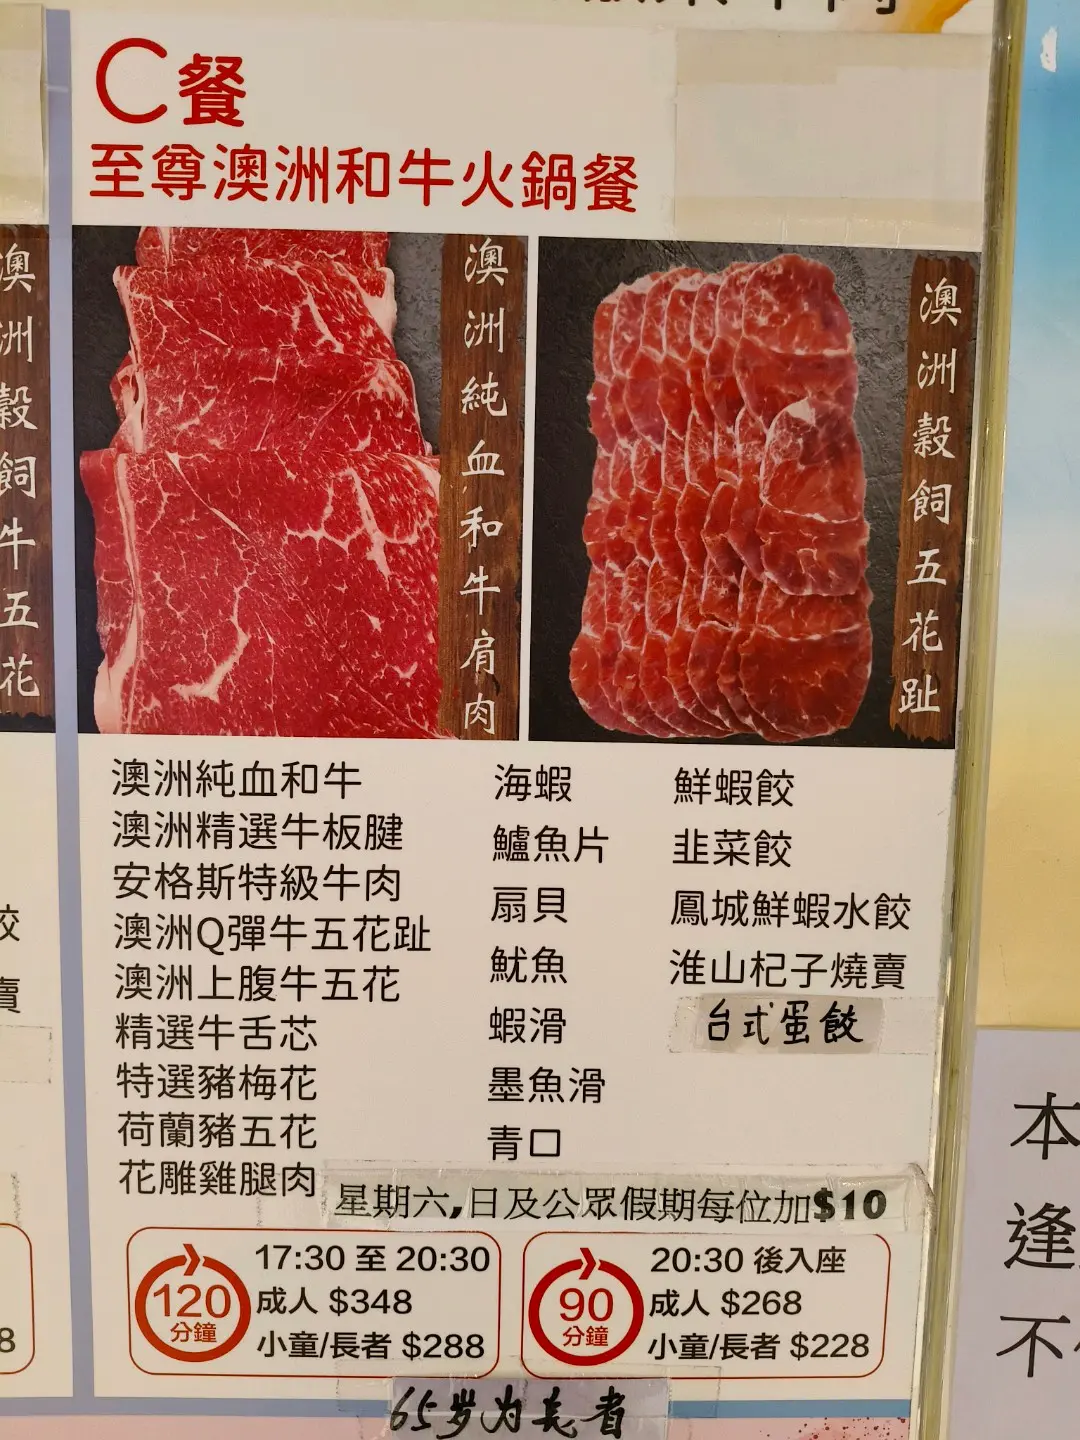 C餐
至尊澳洲和牛火鍋餐
澳洲穀飼牛五花
澳洲純血和牛肩肉
澳洲穀飼五花趾
澳洲純血和牛
澳洲精選牛板腱
安格斯特級牛肉
澳洲Q彈牛五花趾
澳洲上腹牛五花
精選牛舌芯
特選豬梅花
荷蘭豬五花
花雕雞腿肉
海蝦
鱸魚片
扇貝
魷魚
蝦滑
墨魚滑
青口
鮮蝦餃
韭菜餃
鳳城鮮蝦水餃
淮山杞子燒賣
台式蛋餃
餃
賣
星期六,日及公眾假期每位加$10
120分鐘
17:30 至 20:30
成人 $348
小童/長者 $288
90分鐘
20:30 後入座
成人 $268
小童/長者 $228
8
65岁为長者
本
逢
不